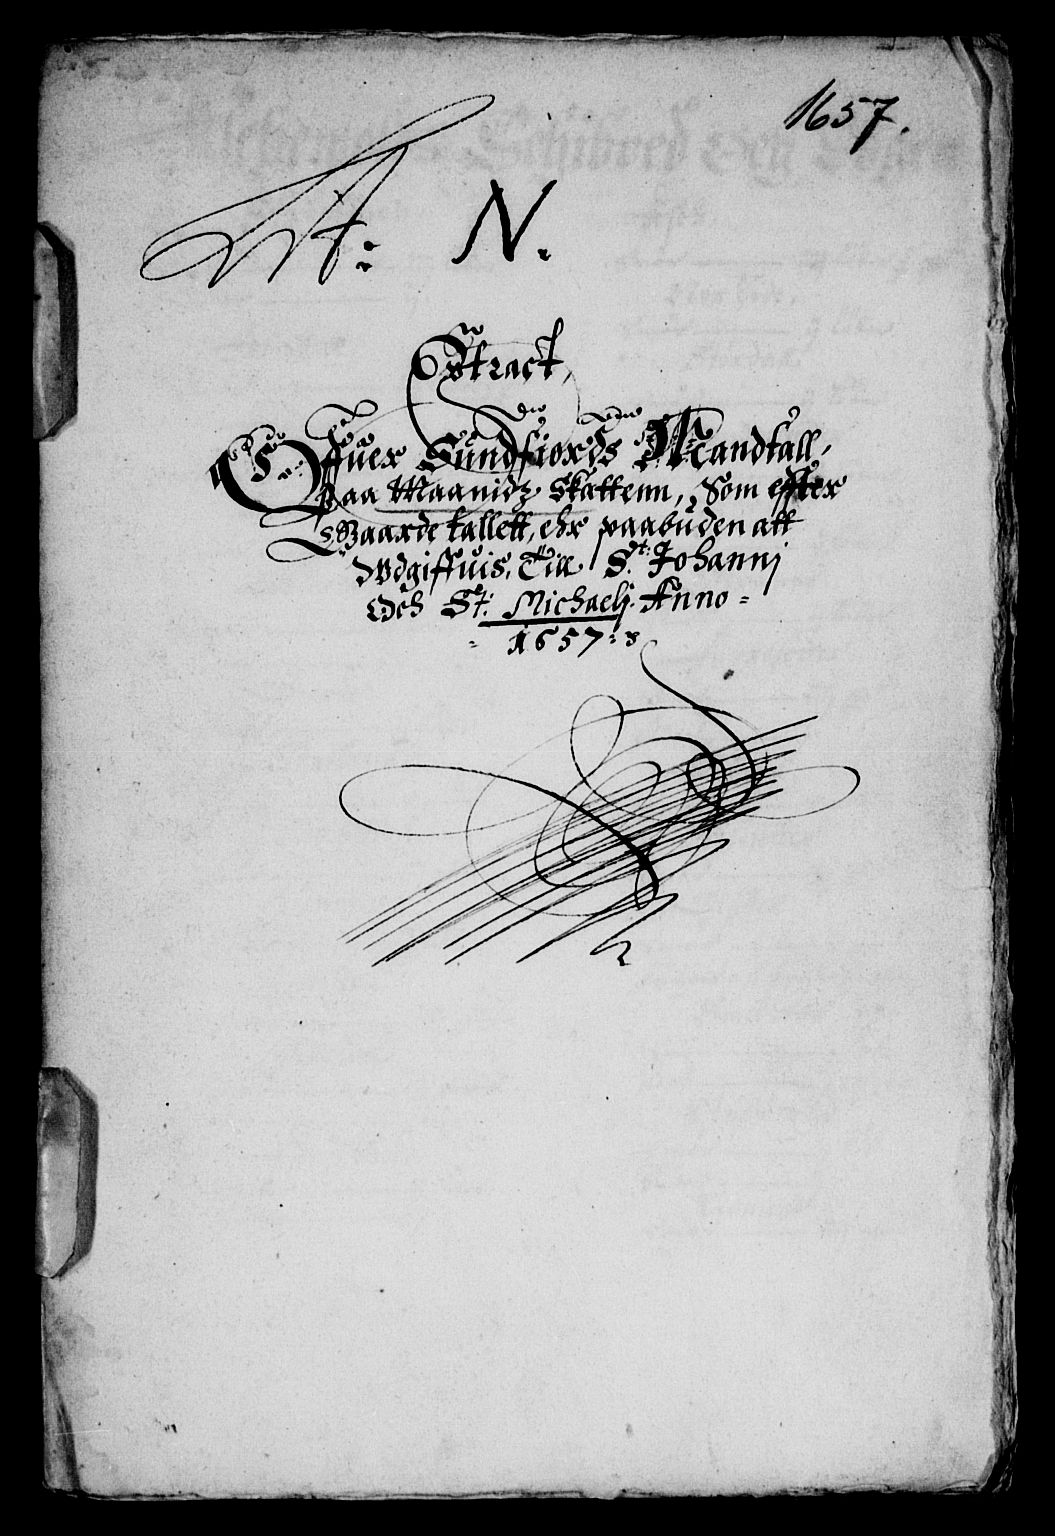 1657.
Lit: N.
Extract,
Offuer Sundfiords Mandtall,
Paa Maanidz Skattenn, Som effter
Gaarde tallett, ehr paabuden att
Udgiffuis, Till St: Johannj
Och St: Michaelj Anno =
= 1657 =